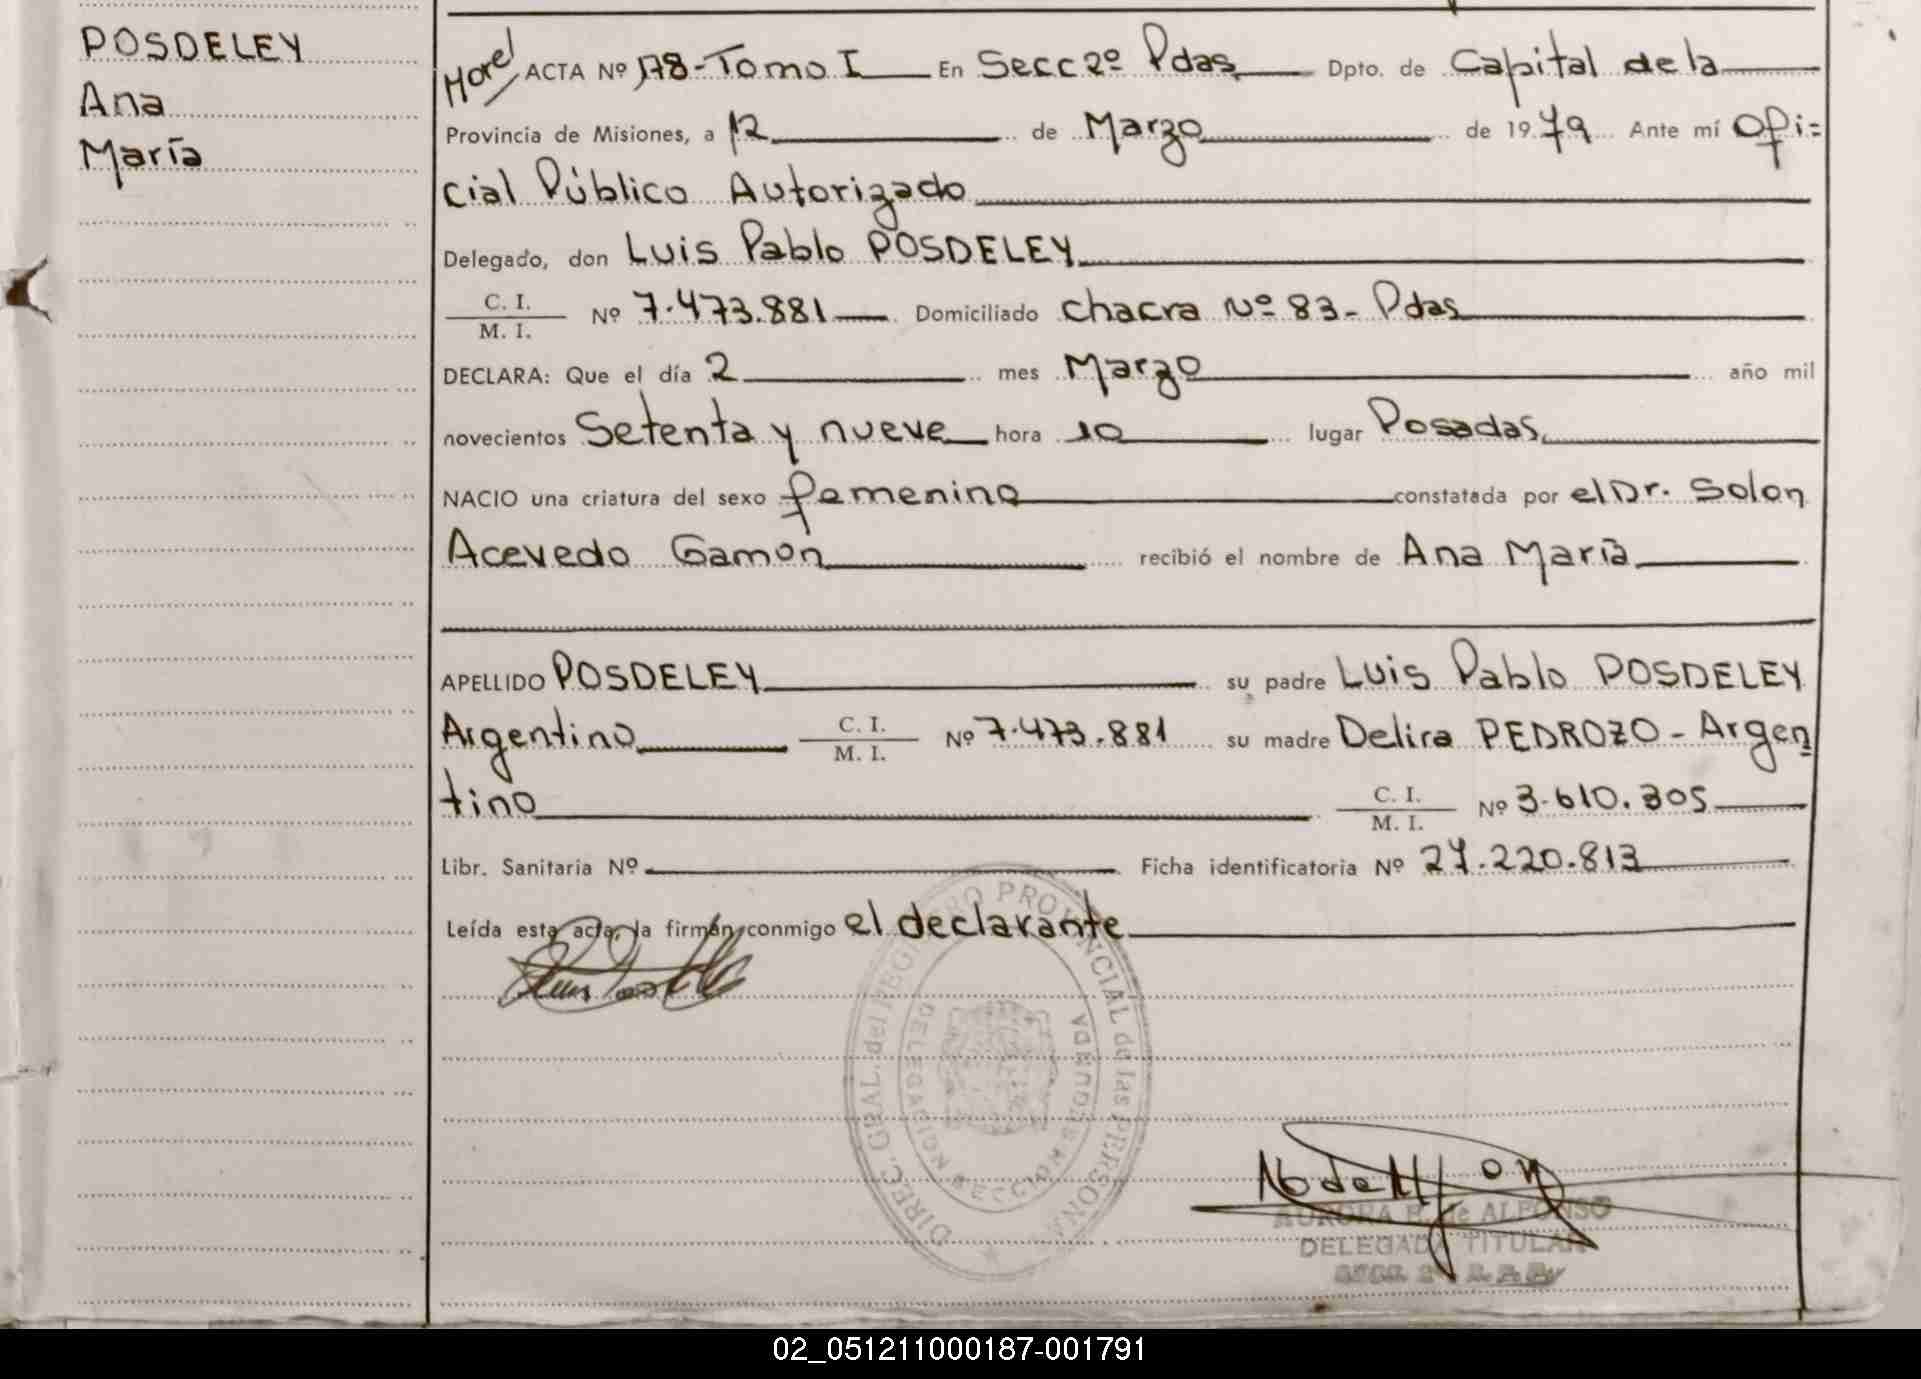 POSDELEY
Ana
María
Morel ACTA Nº 178-Tomo I En Secc 2º Pdas Dpto. de Capital de la
Provincia de Misiones, a 12 de Marzo de 1979 Ante mí Ofi=
cial Público Autorizado
Delegado, don Luis Pablo POSDELEY
C. I.
M. I. Nº 7.473.881 Domiciliado chacra Nº 83- Pdas
DECLARA: Que el día 2 mes Marzo año mil
novecientos Setenta y nueve hora 10 lugar Posadas
NACIO una criatura del sexo femenino constatada por el Dr. Solon
Acevedo Gamon recibió el nombre de Ana María
APELLIDO POSDELEY su padre Luis Pablo POSDELEY
Argentino C. I. M. I. Nº 7.473.881 su madre Delira PEDROZO - Argen
tino C. I. M. I. Nº 3.610.305
Libr. Sanitaria Nº Ficha identificatoria Nº 27.220.813
Leída esta acta, la firman conmigo el declarante
DIREC. GRAL. del REGISTRO PROVINCIAL de las PERSONAS
DELEGACION SECCION SEGUNDA
AURORA P. de ALFONSO
DELEGADA TITULAR
02_051211000187-001791